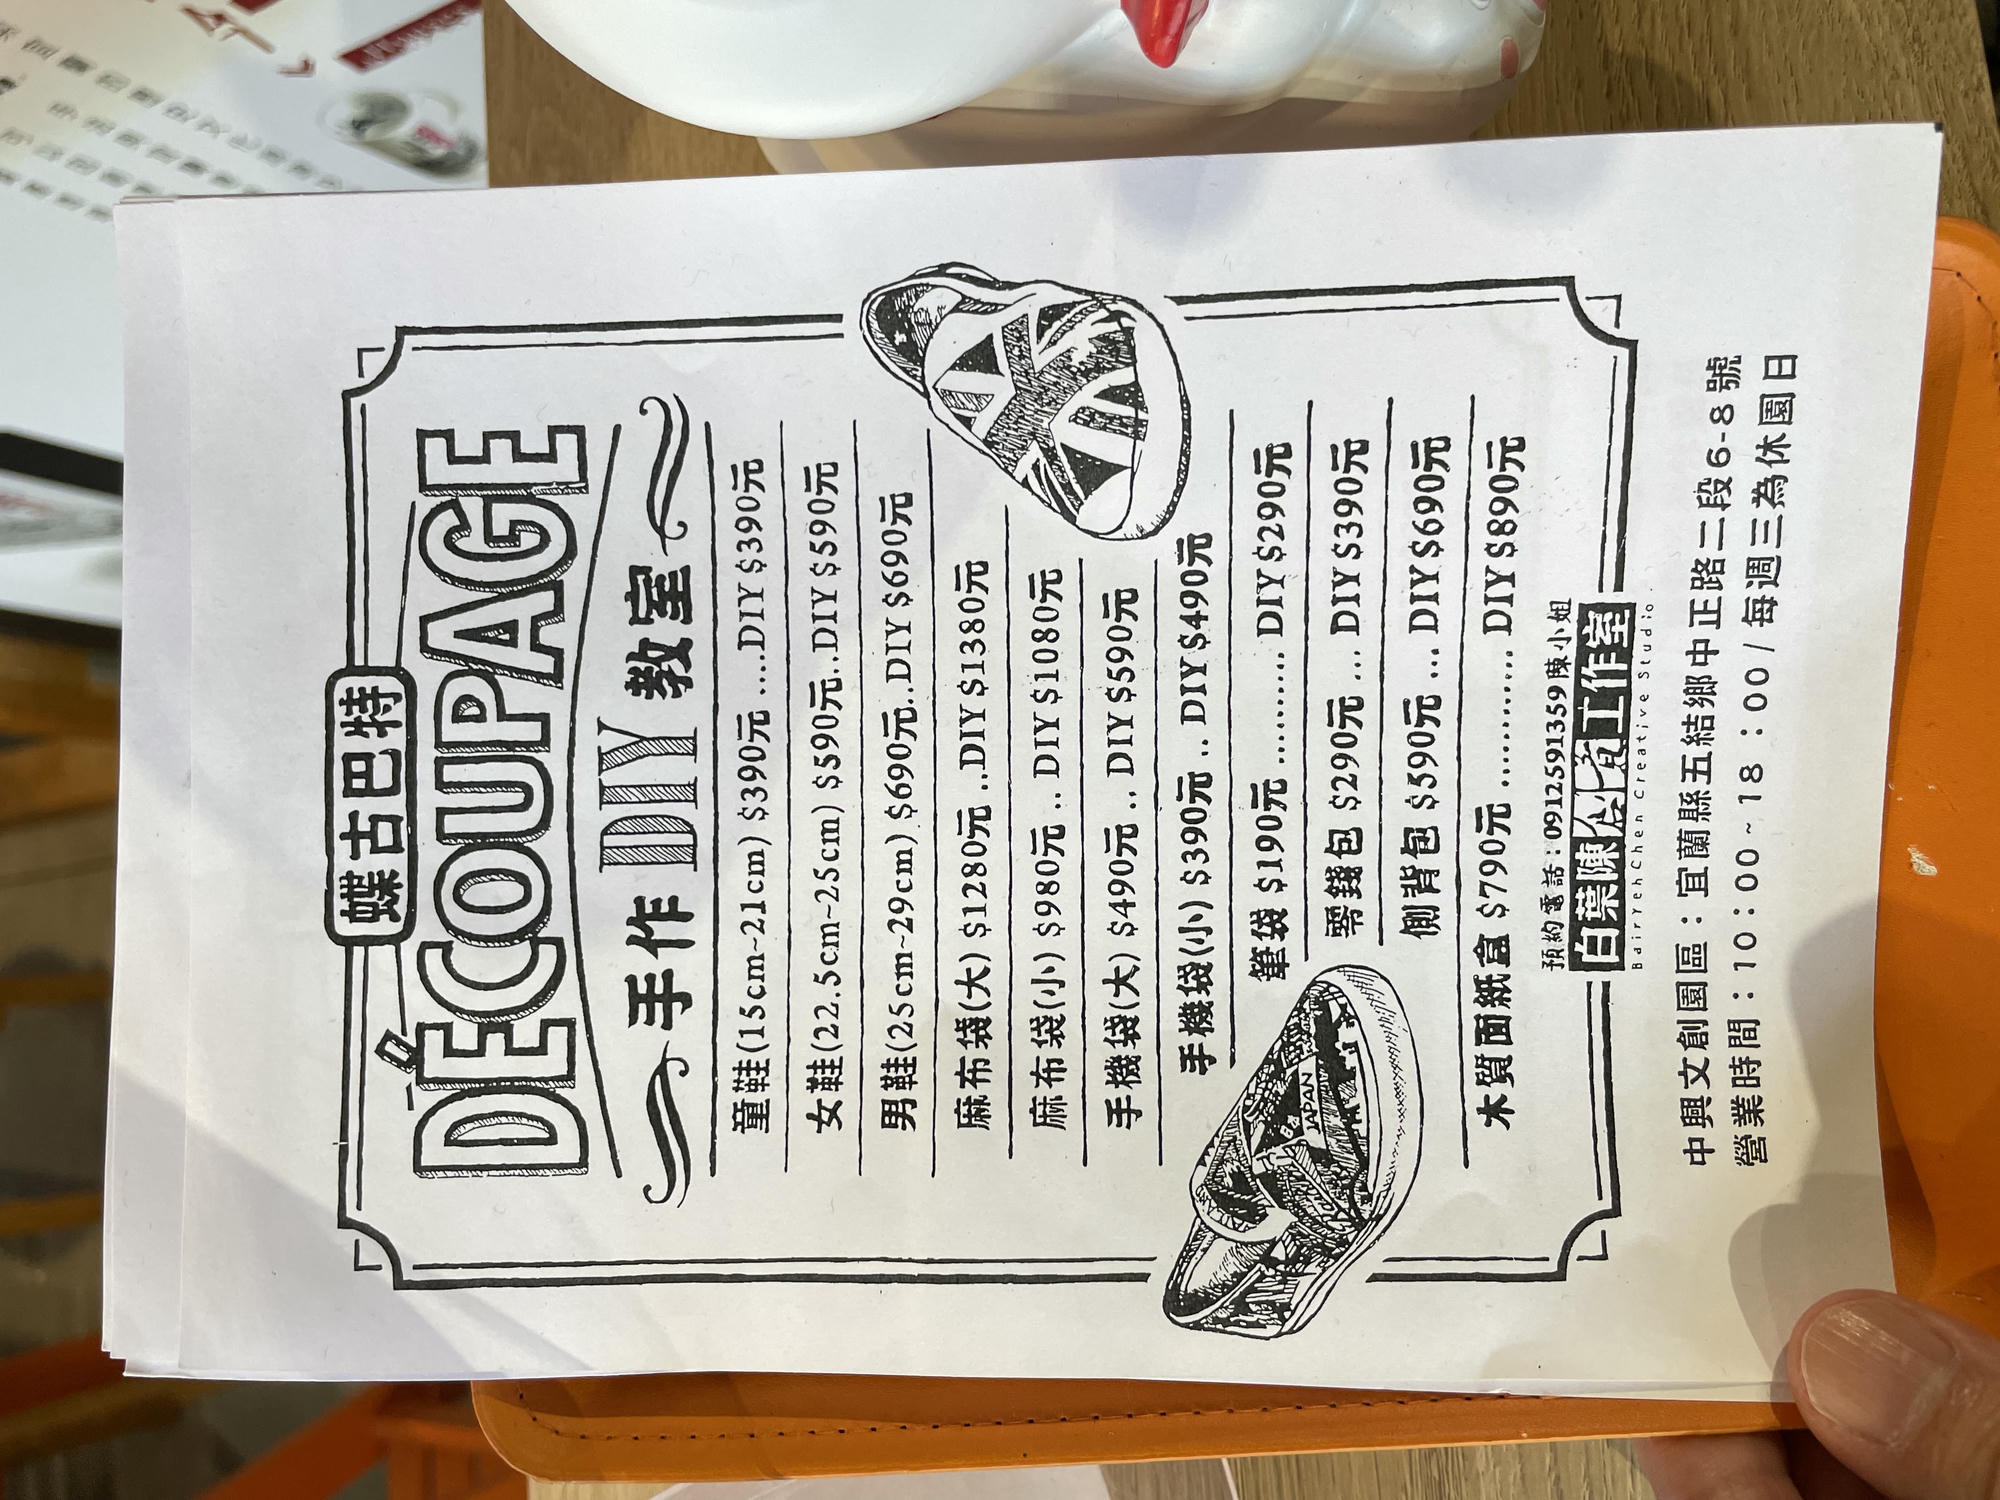 蝶古巴特
DÉCOUPAGE
手作 DIY 教室
童鞋(15cm~21cm) $390元 ....DIY $390元
女鞋(22.5cm~25cm) $590元..DIY $590元
男鞋(25cm~29cm) $690元..DIY $690元
麻布袋(大) $1280元 ..DIY $1380元
麻布袋(小) $980元 .. DIY $1080元
手機袋(大) $490元 .. DIY $590元
手機袋(小) $390元 .. DIY$490元
筆袋 $190元 ........... DIY $290元
零錢包 $290元 ... DIY $390元
側背包 $590元 ... DIY $690元
木質面紙盒 $790元 ............ DIY $890元
JAPAN
預約電話：0912591359陳小姐
白葉陳創意工作室
BairYehChen Creative Studio.
中興文創園區：宜蘭縣五結鄉中正路二段6-8號
營業時間：10：00~18：00/每週三為休園日